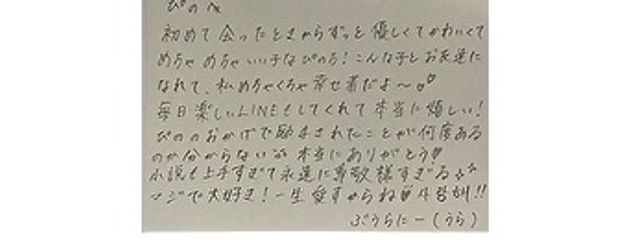 ぴのへ
初めて会ったときからずっと優しくてかわいくて
めちゃめちゃいい子なぴのち!こんな子とお友達に
なれて、私めちゃくちゃ幸せ者だよ〜♡
毎日楽しいLINEもしてくれて本当に嬉しい!
ぴののおかげで励まされたことが何度ある
のか分からないが本当にありがとう♡
小説も上手すぎて永遠に尊敬様すぎる
マジで大好き!一生愛すからね♡사랑해!!
ぷうらにー(うら)